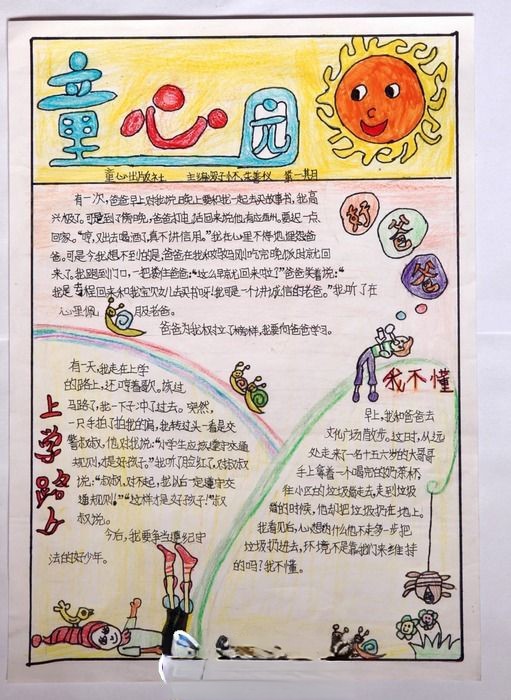 童心园
童心出版社 主编 第一期
好爸爸
有一次，爸爸早上对我说，晚上要和我一起去买故事书，我高
兴极了。可是到了傍晚，爸爸打电话回来说他有应酬，要迟一点
回家。“哼，又出去喝酒了，真不讲信用。”我在心里不停地埋怨爸
爸。可是令我想不到的是，爸爸在我和妈妈刚吃完晚饭时就回
来了。我跑到门口，一把搂住爸爸：“这么早就回来啦？”爸爸笑着说：“
我是专程回来和我宝贝女儿去买书呀！我可是一个讲诚信的老爸。”我听了在
心里佩服老爸。
爸爸为我树立了榜样，我要向爸爸学习。
上学路上
有一天，我走在上学
的路上，还哼着歌。该过
马路了，我一下子冲了过去。突然，
一只手拍了拍我的肩，我转过头一看是交
警叔叔，他对我说：“小学生应该遵守交通
规则，才是好孩子。”我听了脸红了，对叔叔
说：“叔叔，对不起，我以后一定遵守交
通规则！”“这样才是好孩子！”叔
叔说。
今后，我要争当遵纪守
法的好少年。
我不懂
早上，我和爸爸去
文化广场散步。这时，从远
处走来了一名十五六岁的大哥哥
手上拿着一个喝完的奶茶杯，
往小区的垃圾桶走去，走到垃圾
桶的时候，他却把垃圾扔在地上。
我看见后，心想：为什么他不走多一步把
垃圾扔进去，环境不是靠我们来维持
的吗？我不懂。